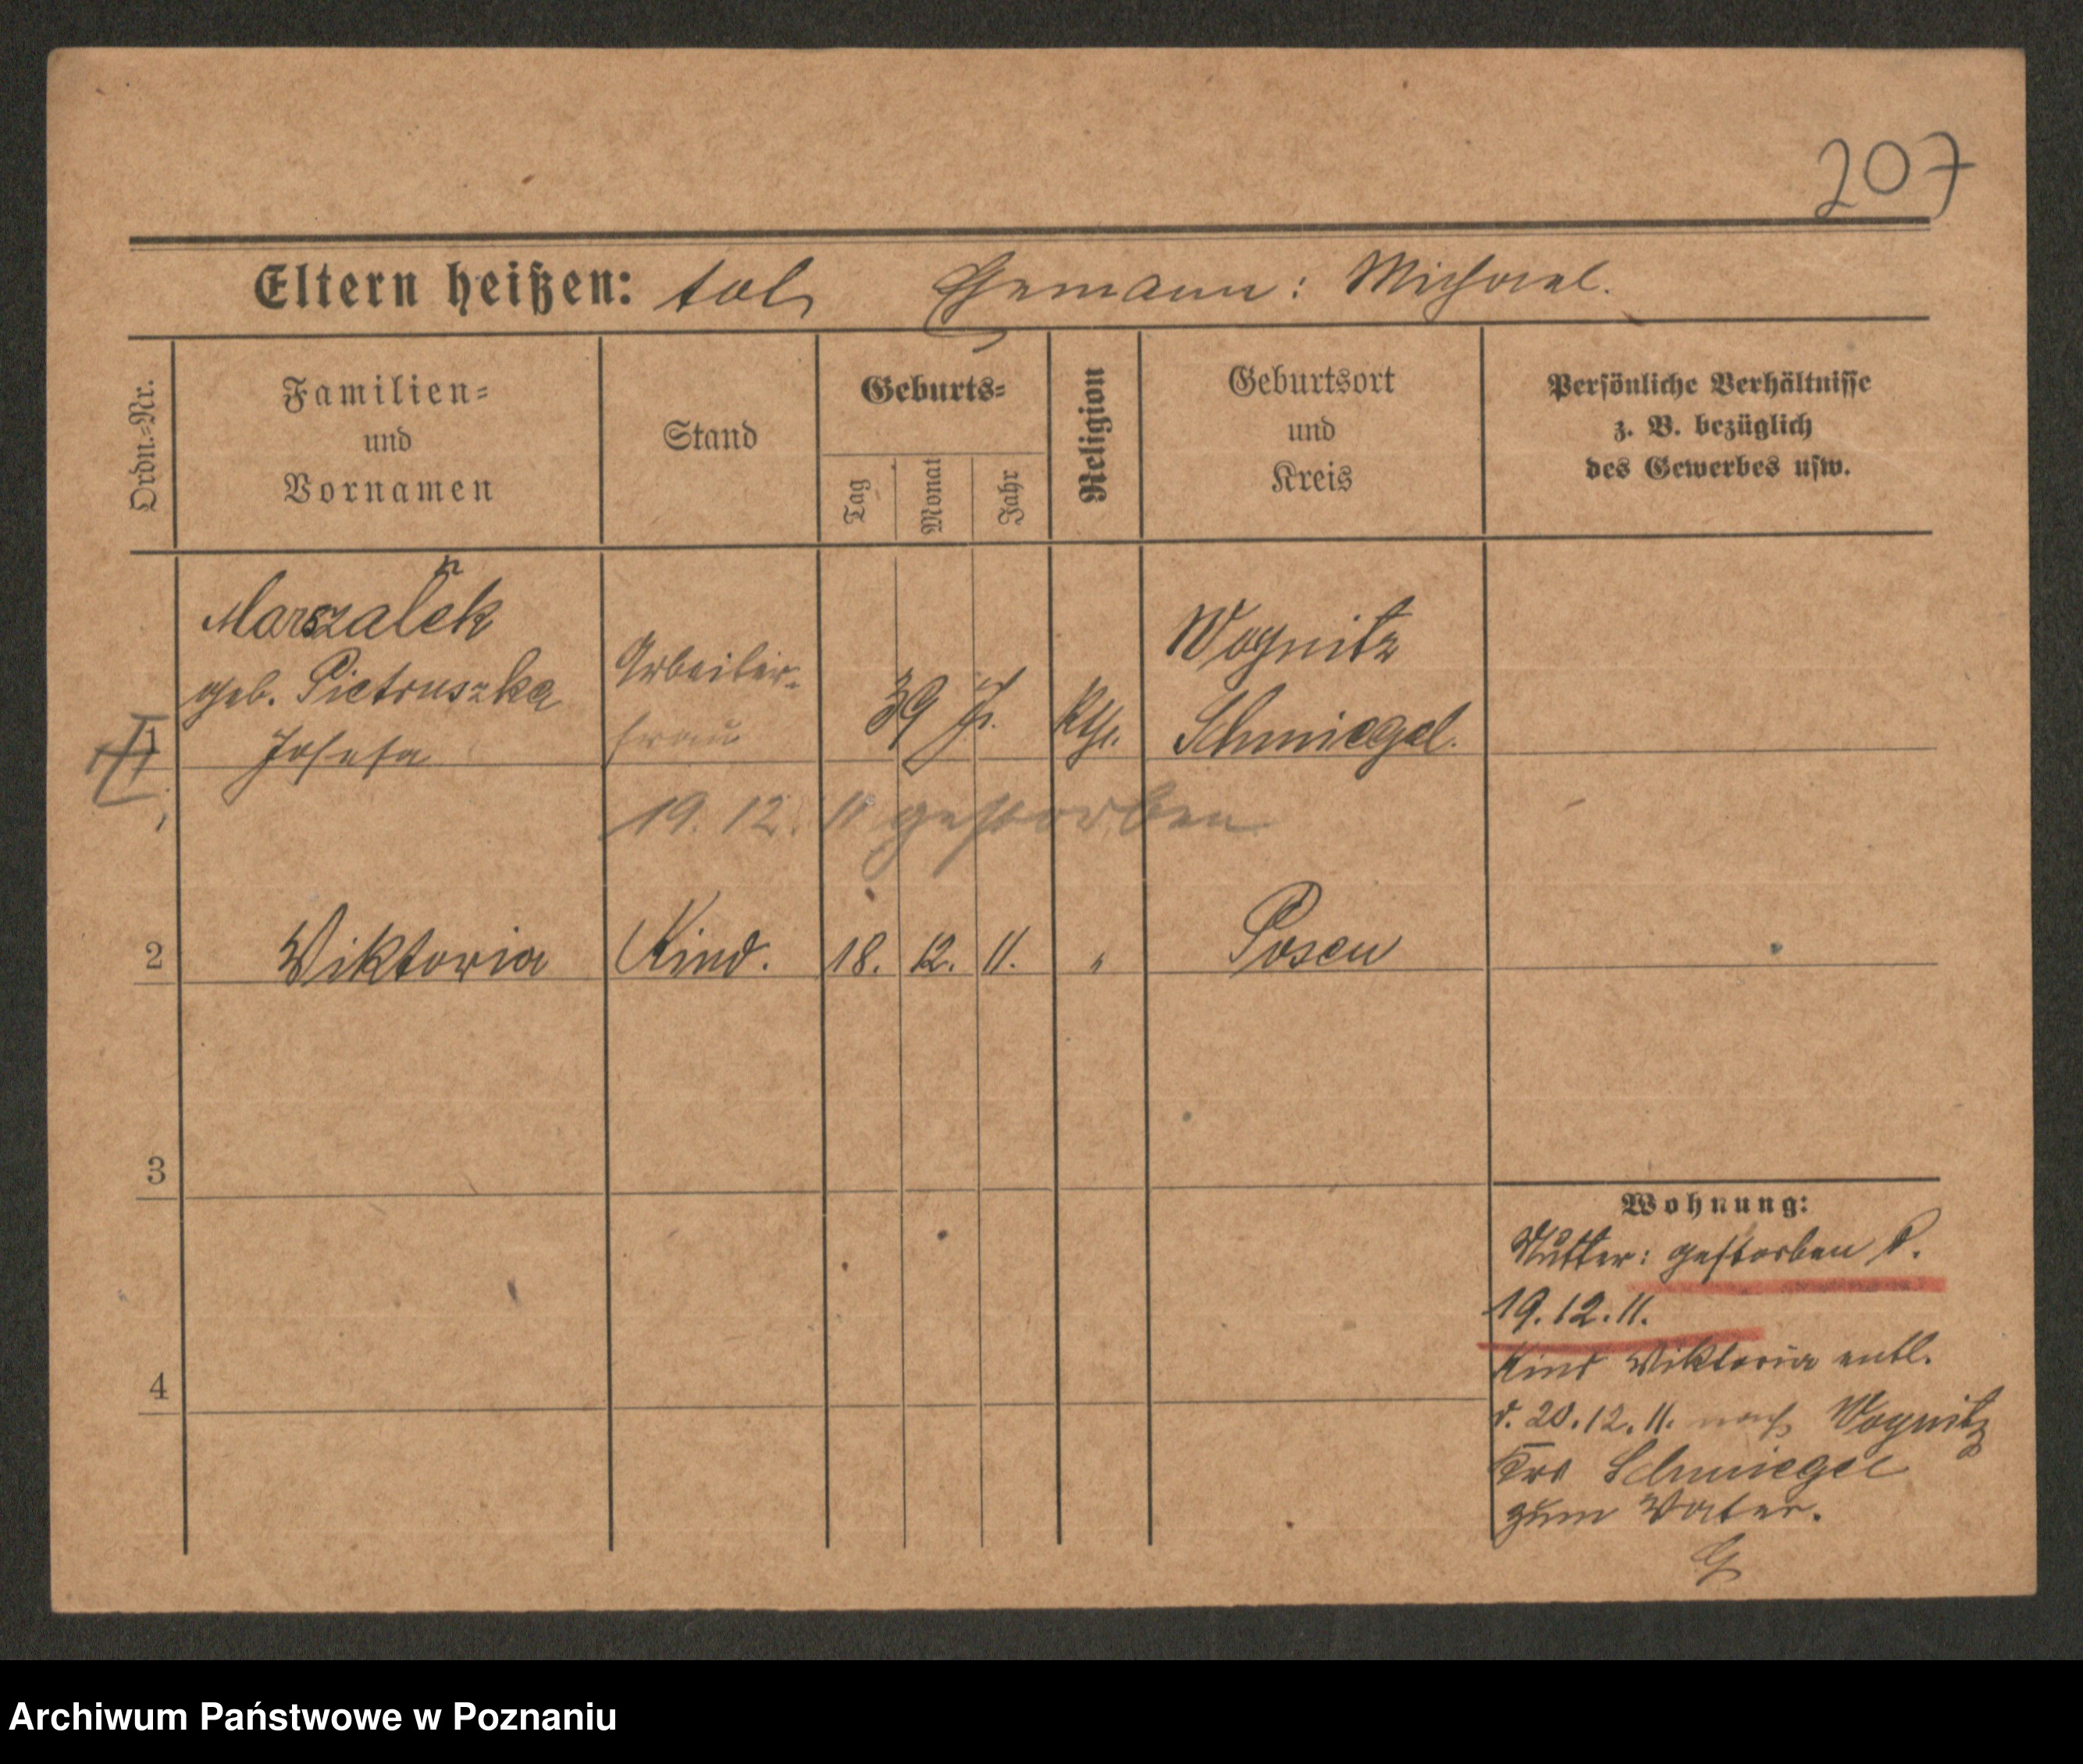 207
Eltern heißen: tot Ehemann: Michael.
Ordn.-Nr.
Familien-
und
Vornamen
Stand
Geburts-
Tag
Monat
Jahr
Religion
Geburtsort
und
Kreis
Persönliche Verhältnisse
z. B. bezüglich
des Gewerbes usw.
1
Marszalek
geb. Pietruszka
Josefa
Arbeiter-
frau
39 J.
Kth.
Wognitz
Schmiegel.
19. 12. 11 gestorben
2
Viktoria
Kind.
18. 12. 11.
"
Posen
3
4
Wohnung:
Mutter: gestorben d.
19.12.11.
Kind Viktoria entl.
d. 20.12.11. nach Wognitz
Krs Schmiegel
zum Vater.
Archiwum Państwowe w Poznaniu